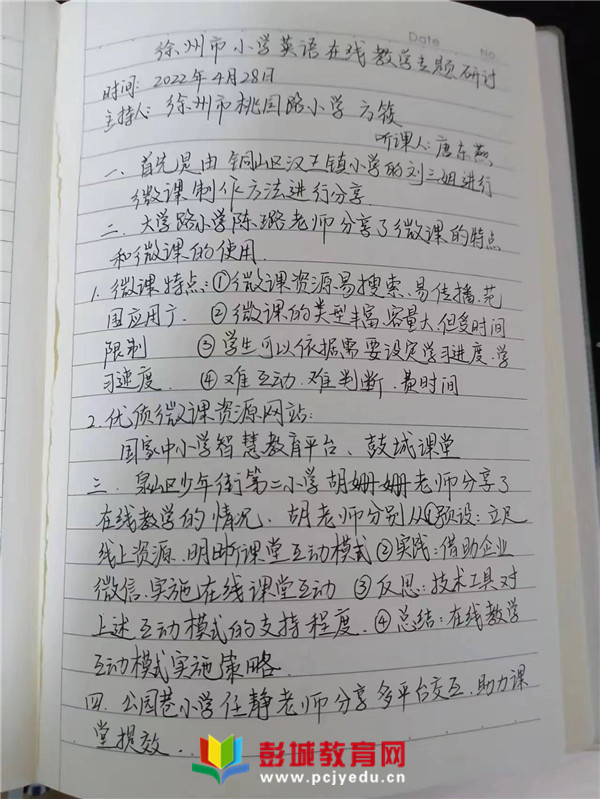 Date
No.
徐州市小学英语在线教学专题研讨
时间: 2022年4月28日
主持人: 徐州市桃园路小学 方筱
听课人: 唐东燕
一、首先是由铜山区汉王镇小学的刘三姐进行
微课制作方法进行分享.
二、大学路小学陈璐老师分享了微课的特点
和微课的使用.
1. 微课特点: ①微课资源易搜索、易传播、范
围应用广. ②微课的类型丰富、容量大、但受时间
限制 ③学生可以依据需要设定学习进度、学
习速度. ④难互动、难判断、费时间
2. 优质微课资源网站:
国家中小学智慧教育平台、鼓城课堂
三、泉山区少年街第二小学胡姗姗老师分享了
在线教学的情况. 胡老师分别从①预设: 立足
线上资源、明晰课堂互动模式②实践: 借助企业
微信、实施在线课堂互动 ③反思: 技术工具对
上述互动模式的支持程度. ④总结: 在线教学
互动模式实施策略.
四、公园巷小学任静老师分享多平台交互、助力课
堂提效.
彭城教育网
www.pcjyedu.cn